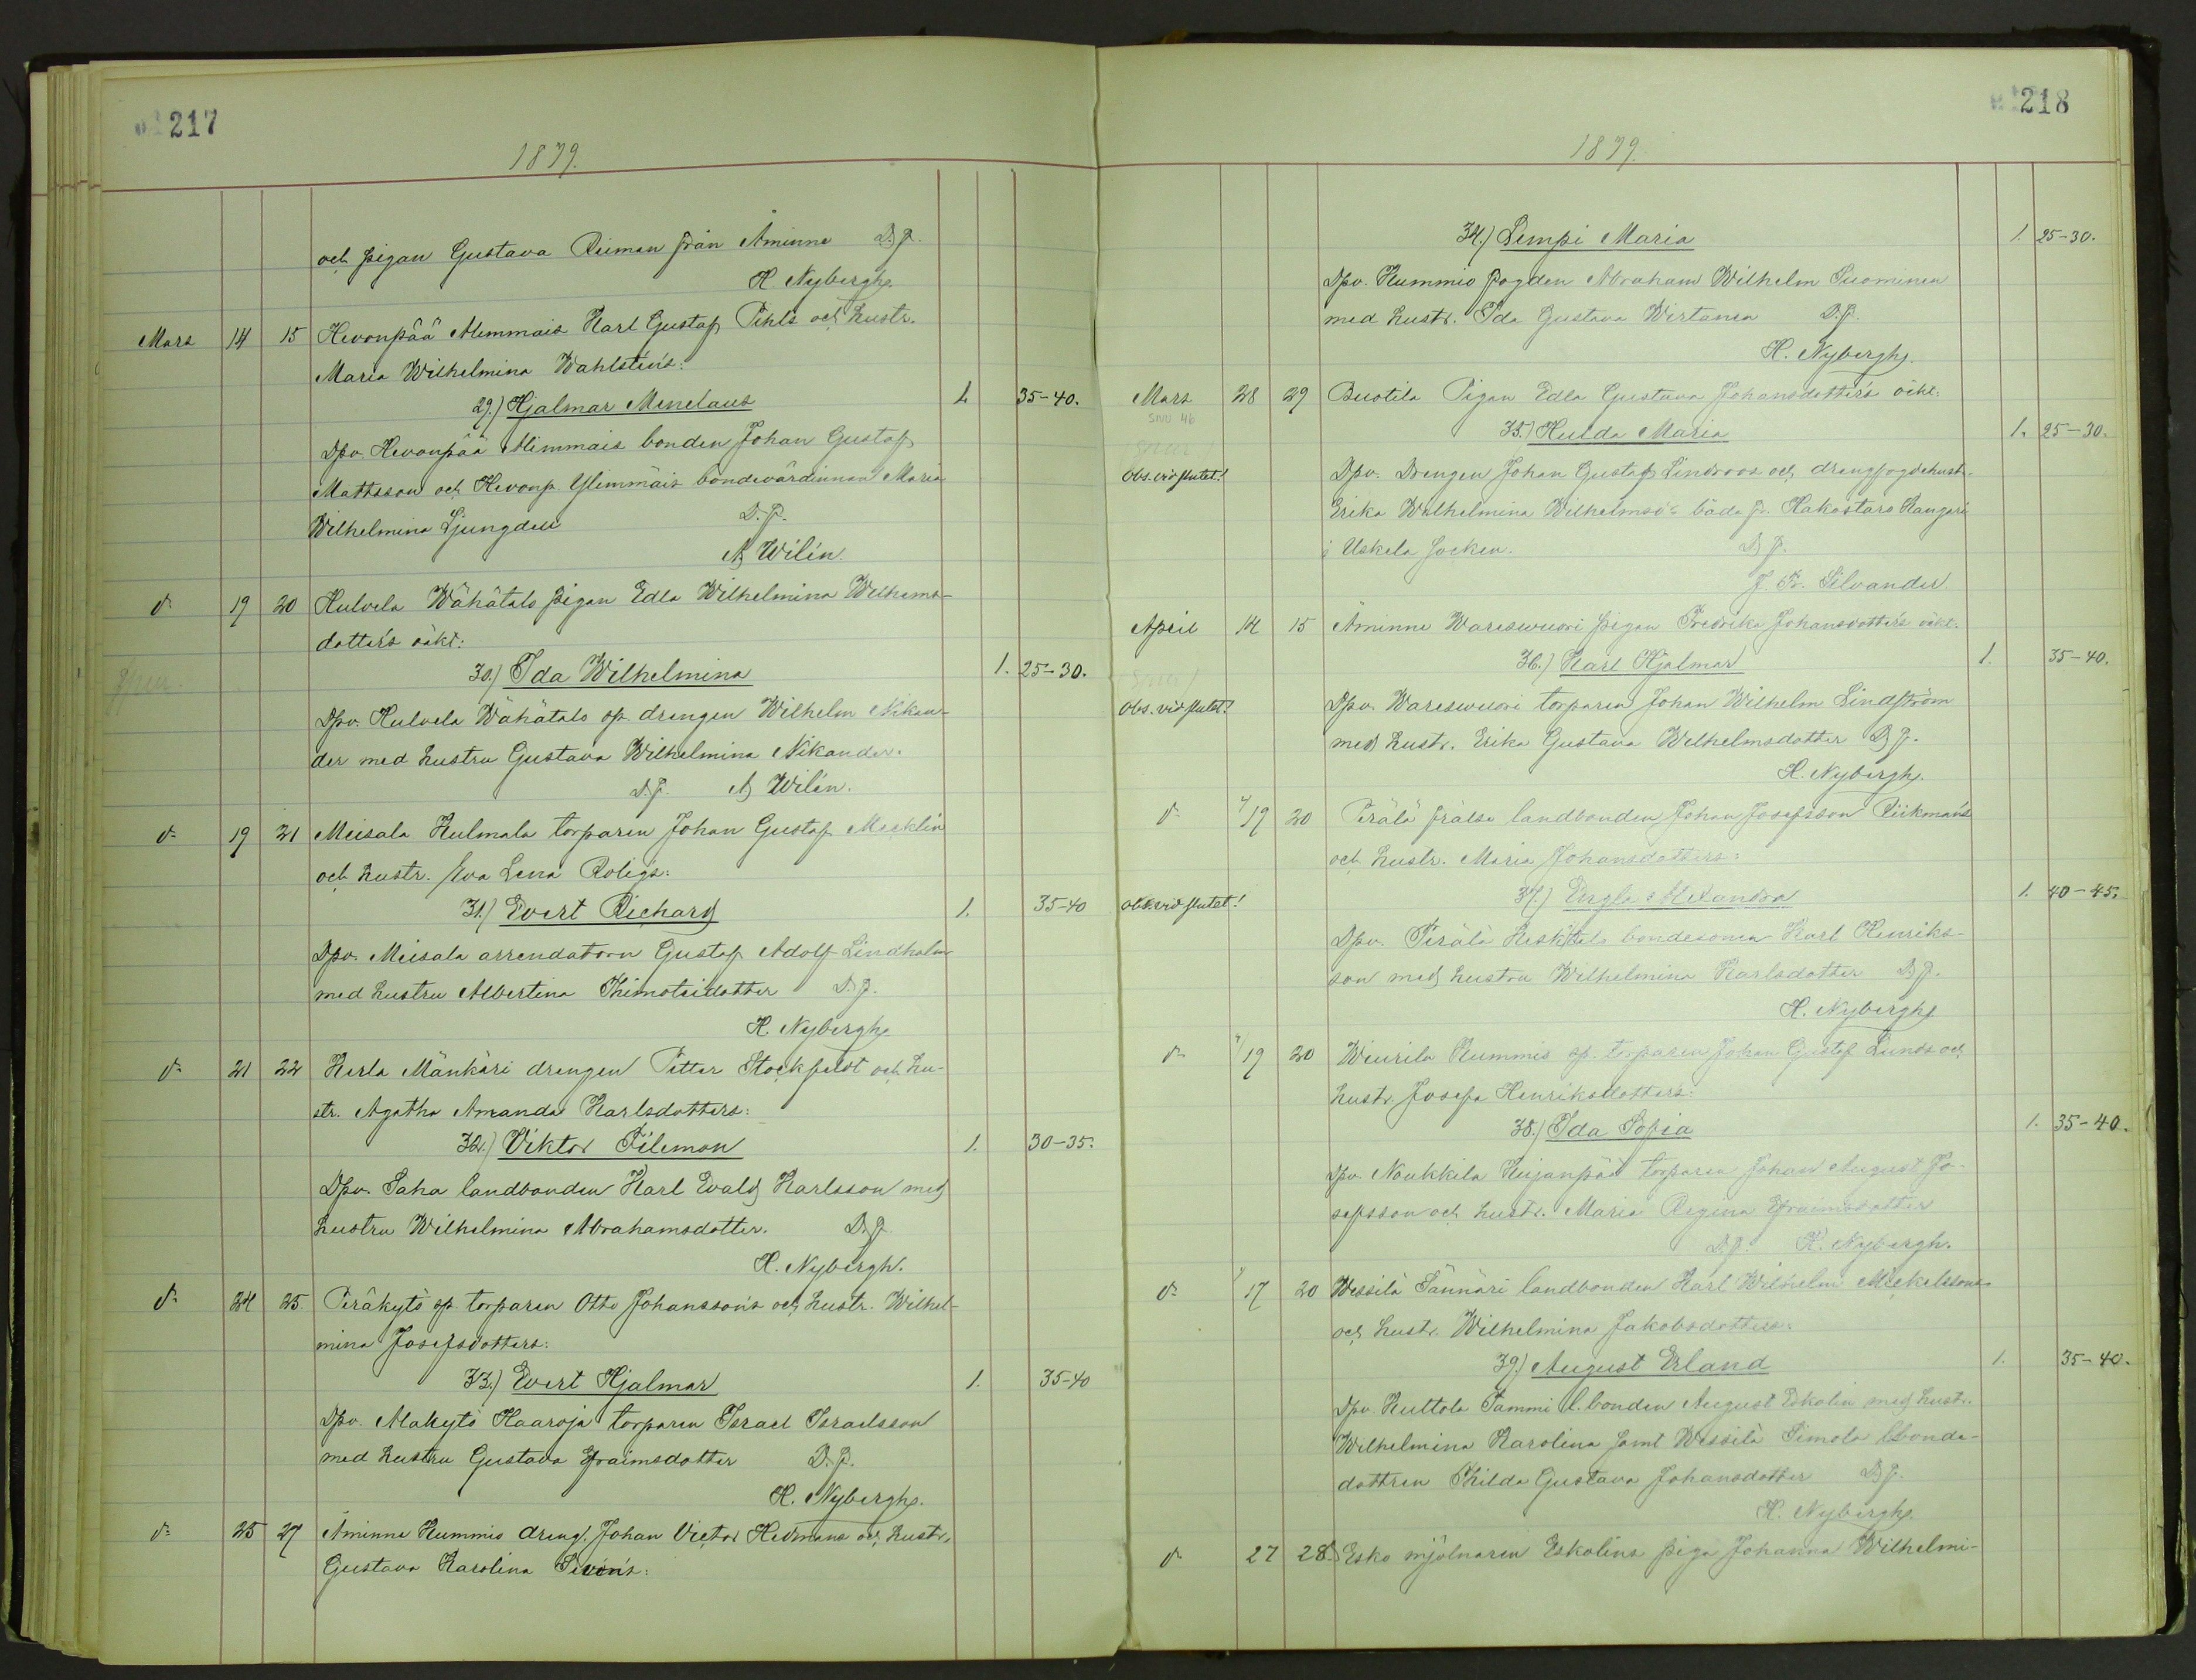 217
1879.
och pigan Gustava Reiman från Åminne D.p.
H. Nybergh.
Mars 14 15 Hevonpää Alimmais Karl Gustaf Pihls och hustr.
Maria Wilhelmina Wahlsten's:
29.) Hjalmar Menelaus 1. 35-40.
Dpv. Hevonpää Alimmais bonden Johan Gustaf
Mattsson och Hevonp. Ylimmäis bondevärdinnan Maria
Wilhelmina Ljungdell D.p.
A Wilén.
d:o 19 20 Hulvela Wähätalo pigan Edla Wilhelmina Wilhelms-
dotter's oäkt:
30.) Ida Wilhelmina 1. 25-30.
Dpv. Hulvela Wähätalo sp. drengen Wilhelm Nikan-
der med hustru Gustava Wilhelmina Nikander.
D.p. A Wilén.
d:o 19 21 Meisala Hulmala torparen Johan Gustaf Mecklin
och hustr. Eva Lena Roligs:
31.) Evert Richard 1. 35-40
Dpv. Meisala arrendatorn Gustaf Adolf Lindholm
med hustru Albertina Thimoteidotter D.p.
H. Nybergh
d:o 21 22 Kerla Mänkäri drengen Petter Stockfeldt och hu-
str. Agatha Amanda Karlsdotters:
32.) Viktor Filemon 1. 30-35.
Dpv. Saha landbonden Karl Evald Karlsson med
hustru Wilhelmina Abrahamsdotter. D.p.
H. Nybergh.
d:o 24 25. Peräkytö sp. torparen Otto Johansson's och hustr. Wilhel-
mina Josefsdotters:
33.) Evert Hjalmar 1. 35-40
Dpv. Alakytö Haaroja torparen Israel Israelsson
med hustru Gustava Efraimsdotter D.p.
H. Nybergh.
d:o 25 27 Åminne Kummio dreng. Johan Victor Hedmans och hustr.
Gustava Karolina Sevón's:
218
1879.
34.) Lempi Maria 1. 25-30.
Dpv. Kummio fogden Abraham Wilhelm Suominen
med hustr. Ida Gustava Wirtanen D.p.
H. Nybergh.
Mars 28 29 Buotila Pigan Edla Gustava Johansdotter's oäkt:
sivu 46
35.) Hulda Maria 1. 25-30.
Obs. vid slutet! Dpv. Drengen Johan Gustaf Lindroos och drengfogdehustr.
Erika Wilhelmina Wilhelmsd:r båda fr. Hakostaro Kangari
i Uskela socken. D.p.
J. Fr. Silvander
April 14 15 Åminne Wareswuori pigan Fredrika Johansdotter's oäkt.
36.) Karl Hjalmar 1. 35-40.
Obs. vid slutet! Dpv. Wareswuori torparen Johan Wilhelm Lindström
med hustr. Erika Gustava Wilhelmsdotter D.p.
H. Nybergh.
d:o 19 20 Perälä frälse landbonden Johan Josefsson Riikman's
och hustr. Maria Johansdotters:
obs. vid slutet! 37.) Engla Alexandra 1. 40-45.
Dpv. Perälä Keskitalo bondesonen Karl Henriks-
son med hustru Wilhelmina Karlsdotter D.p.
H. Nybergh.
d:o 19 20 Wiurila Kummis sp. torparen Johan Gustaf Lunds och
hustr. Josefa Henriksdotters:
38.) Ida Sofia 1. 35-40.
Dpv. Noukkila Kujanpää torparen Johan August Jo-
sefsson och hustr. Maria Regina Efraimsdotter
D.p. H. Nybergh.
d:o 17 20 Wessilä Sännäri landbonden Karl Wilhelm Mickelssons
och hustr. Wilhelmina Jakobsdotters:
39.) August Erland 1. 35-40.
Dpv. Kuttola Tammi l.bonden August Eskolin med hustr.
Wilhelmina Karolina samt Wessilä Simola l.bonde-
dottren Hilda Gustava Johansdotter D.p.
H. Nybergh.
d:o 27 28. Esko mjölnaren Eskolins piga Johanna Wilhelmi-